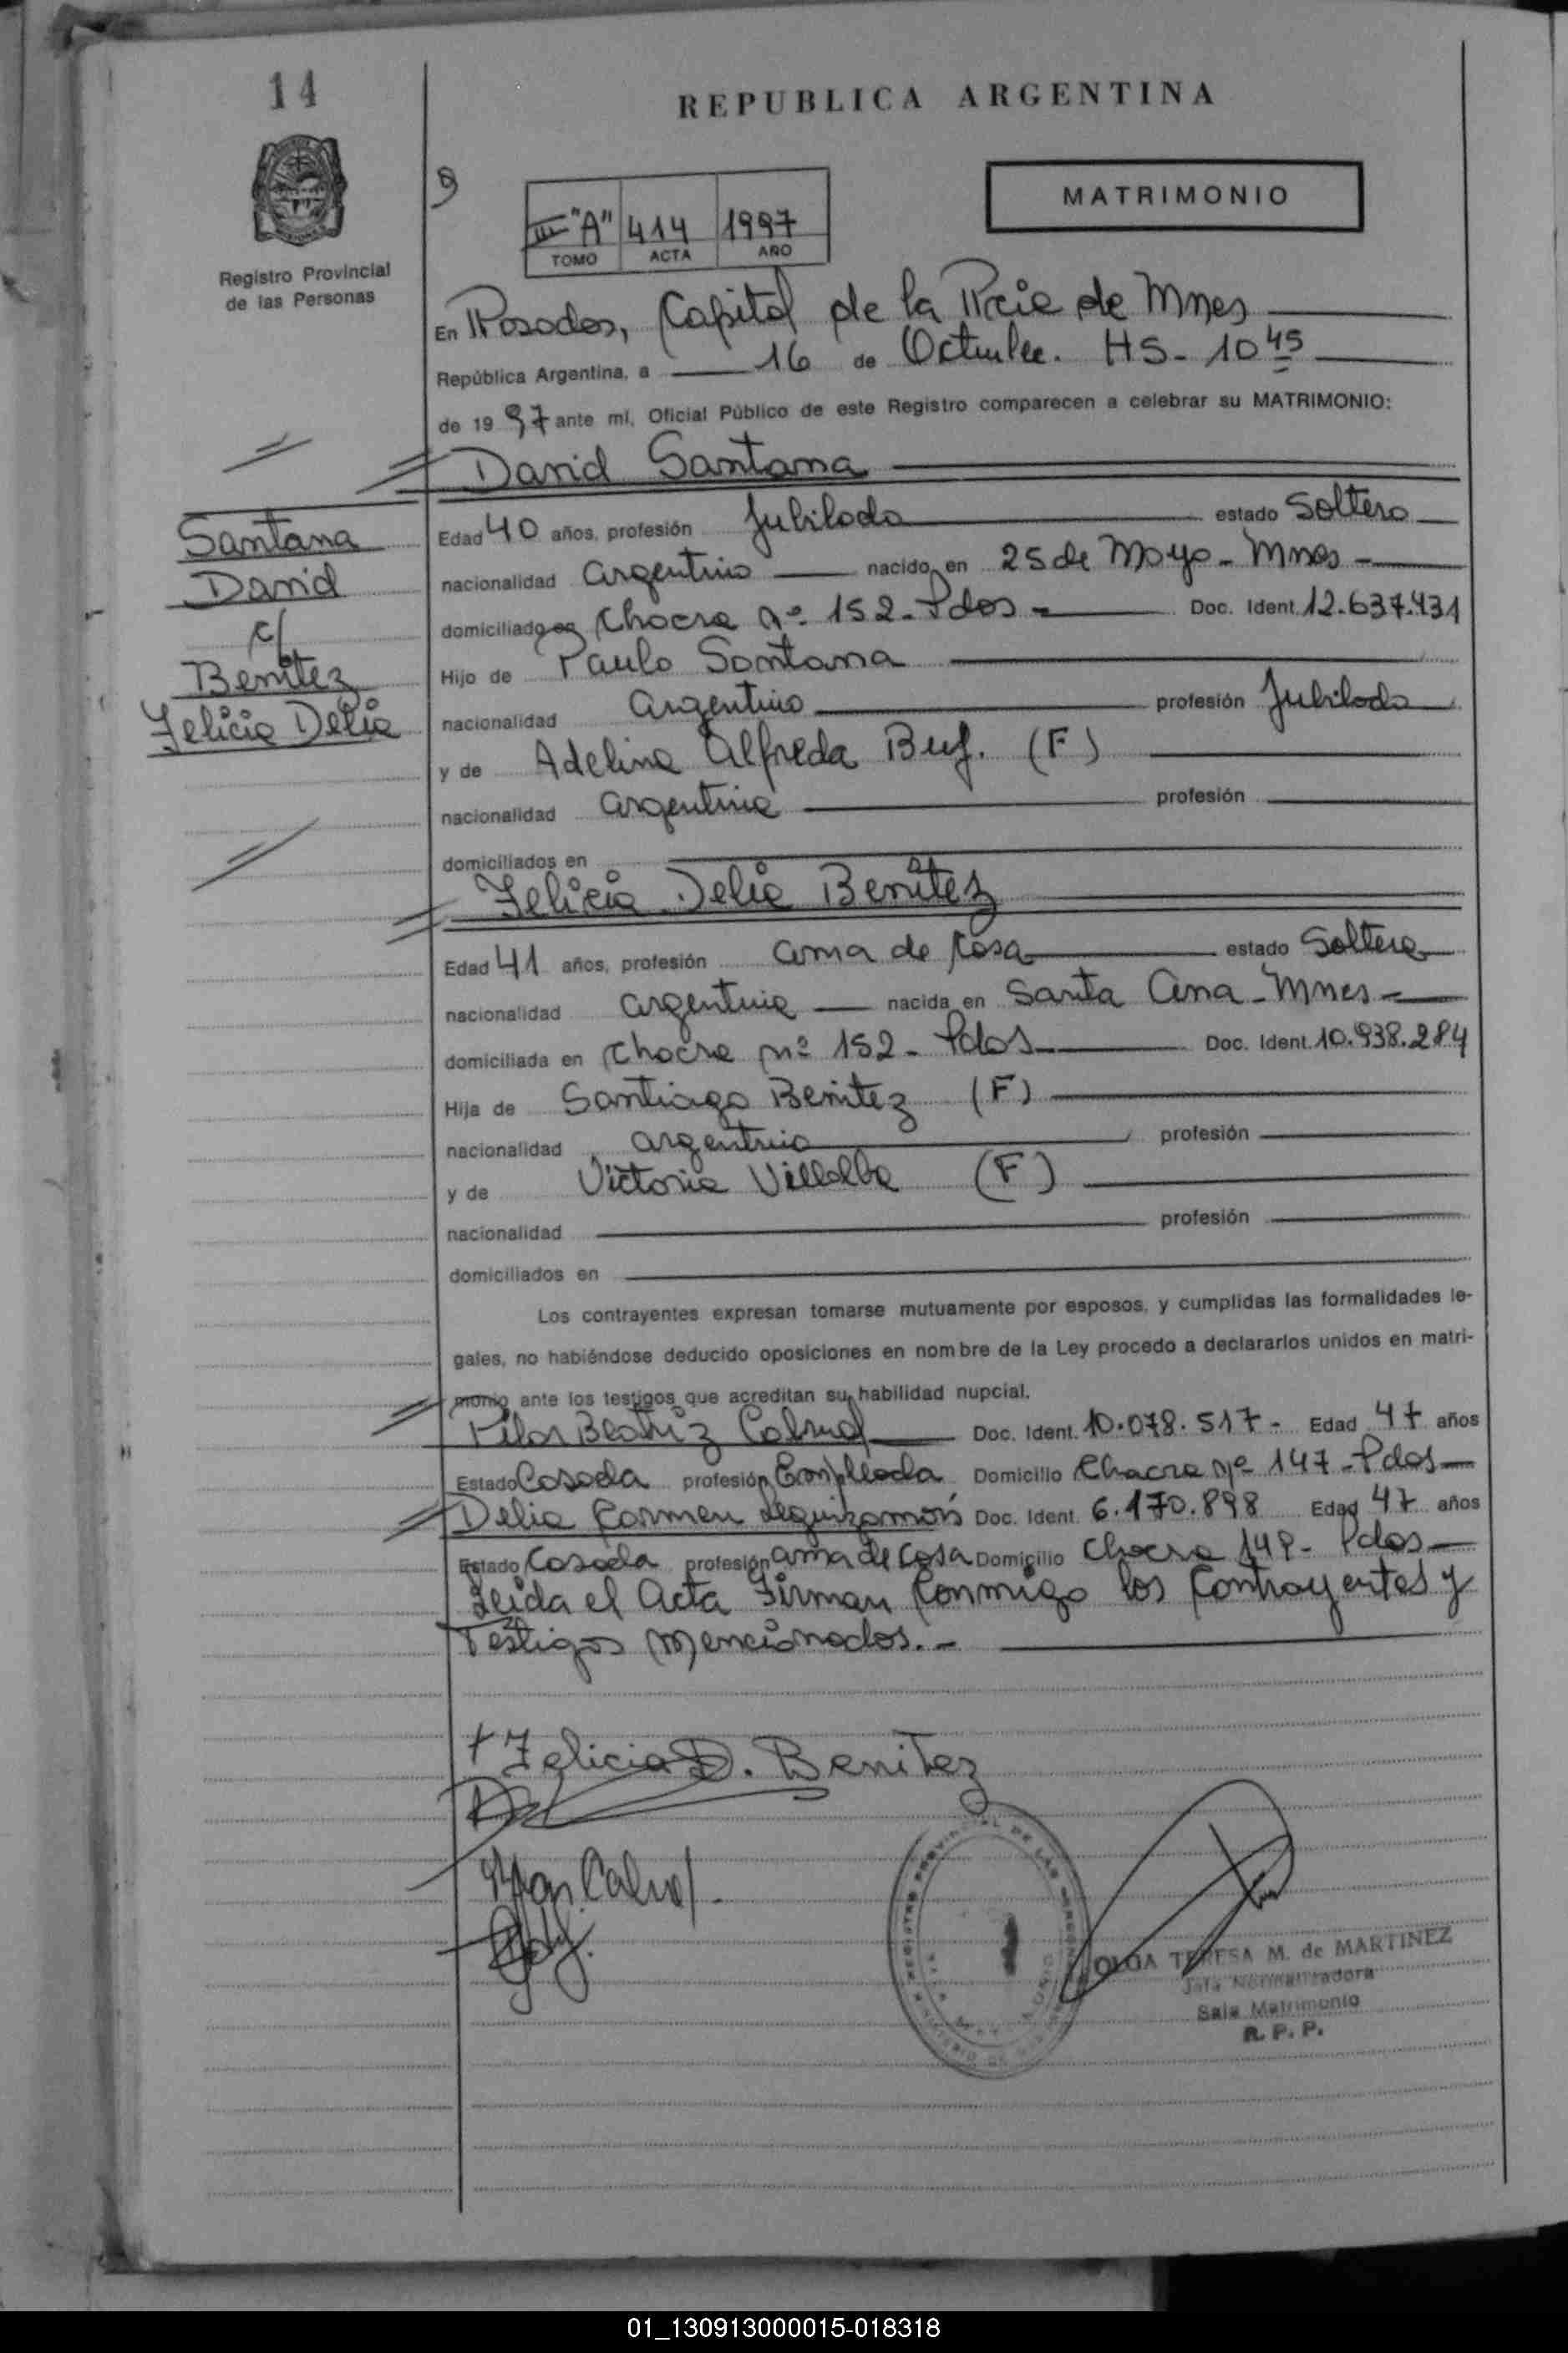 14
REPUBLICA ARGENTINA
MATRIMONIO
III "A" 414 1997
TOMO ACTA AÑO
Registro Provincial
de las Personas
En Posadas, Capital de la Pcia de Mnes
República Argentina, a 16 de Octubre. HS- 10 45
de 19 97 ante mí, Oficial Público de este Registro comparecen a celebrar su MATRIMONIO:
David Santana
Santana
David
c/
Benitez
Felicia Delia
Edad 40 años, profesión Jubilado estado Soltero
nacionalidad Argentino nacido en 25 de Mayo - Mnes -
domiciliado en Chacra nº 152 - Pdas - Doc. Ident. 12.637.431
Hijo de Paulo Santana
nacionalidad Argentino profesión Jubilado
y de Adelina Alfreda (F)
nacionalidad Argentina profesión
domiciliados en
Felicia Delia Benitez
Edad 41 años, profesión ama de casa estado Soltera
nacionalidad Argentina nacida en Santa Ana - Mnes -
domiciliada en Chacra nº 152 - Pdas Doc. Ident. 10.938.284
Hija de Santiago Benitez (F)
nacionalidad argentino profesión
y de Victoria Villalba (F)
nacionalidad profesión
domiciliados en
Los contrayentes expresan tomarse mutuamente por esposos, y cumplidas las formalidades le-
gales, no habiéndose deducido oposiciones en nombre de la Ley procedo a declararlos unidos en matri-
monio ante los testigos que acreditan su habilidad nupcial.
Pilar Beatriz Cabral Doc. Ident. 10.078.517 - Edad 47 años
Estado Casada profesión Empleada Domicilio Chacra nº 147 - Pdas
Delia Carmen Leguizamón Doc. Ident. 6.170.898 Edad 47 años
Estado Casada profesión ama de casa Domicilio Chacra 148 - Pdas
Leida el Acta Firman Conmigo los Contrayentes y
Testigos Mencionados. -
Felicia D. Benitez
OLGA TERESA M. de MARTINEZ
Sala Matrimonio
R. P. P.
01_130913000015-018318